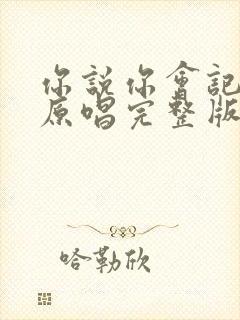 你說你會記
原唱完整版
哈勒欣